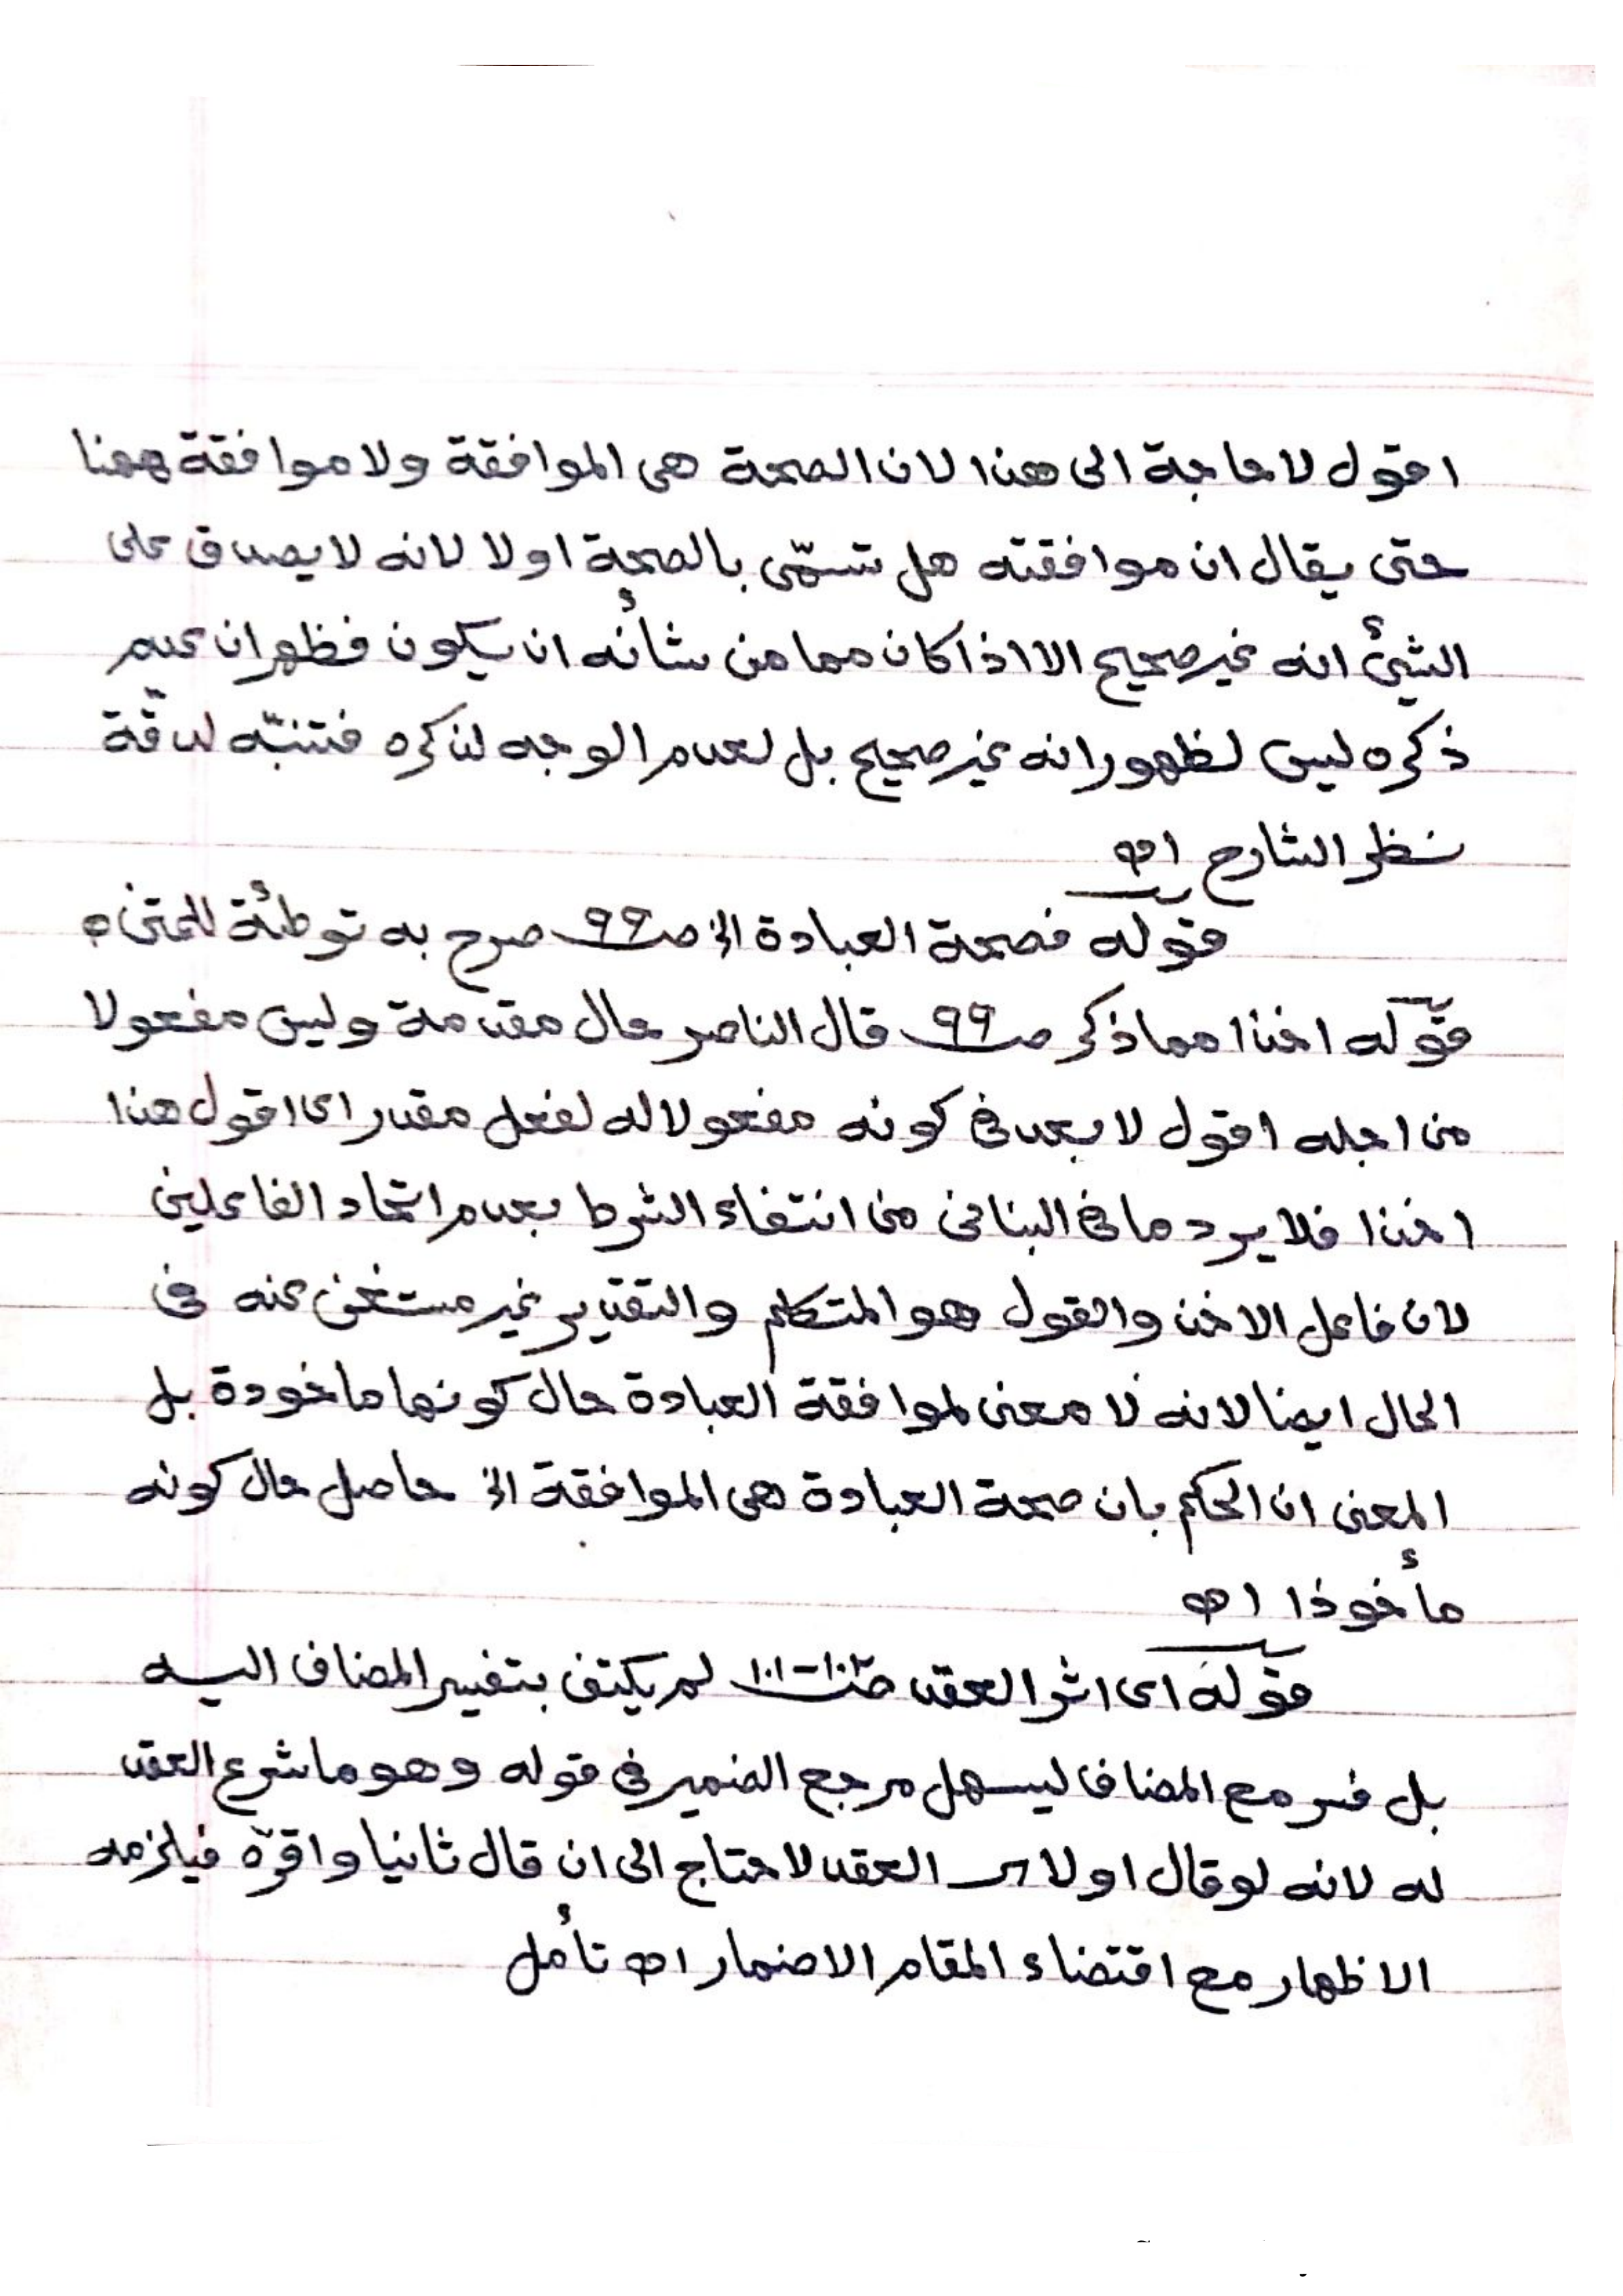 اقول لا حاجة الى هذا لان الصحة هى الموافقة ولا موافقة ههنا
حتى يقال ان موافقته هل تسمّى بالصحة اولا لانه لا يصدق على
الشيئ انه غير صحيح الا اذا كان مما من شأنه ان يكون فظهر ان عدم
ذكره ليس لظهور انه غير صحيح بل لعدم الوجه لذكره فتنبّه لدقّة
نظر الشارح اه
قوله فصحة العبادة الخ صـ٩٩ صرح به توطئة للمتن اه
قوله اخذا مما ذكر صـ٩٩ قال الناصر حال مقدمة وليس مفعولا
من اجله اقول لا بعد فى كونه مفعولا له لفعل مقدر اى اقول هذا
اخذا فلا يرد ما فى البنانى من انتفاء الشرط بعدم اتحاد الفاعلين
لان فاعل الاخذ والقول هو المتكلم والتقدير غير مستغنى عنه فى
الحال ايضا لانه لا معنى لموافقة العبادة حال كونها ماخوذة بل
المعنى ان الحكم بان صحة العبادة هى الموافقة الخ حاصل حال كونه
مأخوذا اه
قوله اى اثر العقد صـ١٠٠-١٠١ لم يكتف بتفسير المضاف اليه
بل فسر مع المضاف ليسهل مرجع الضمير فى قوله وهو ما شرع العقد
له لانه لو قال اولا العقد لاحتاج الى ان قال ثانيا واقرّه فيلزمه
الاظهار مع اقتضاء المقام الاضمار اه تأمل